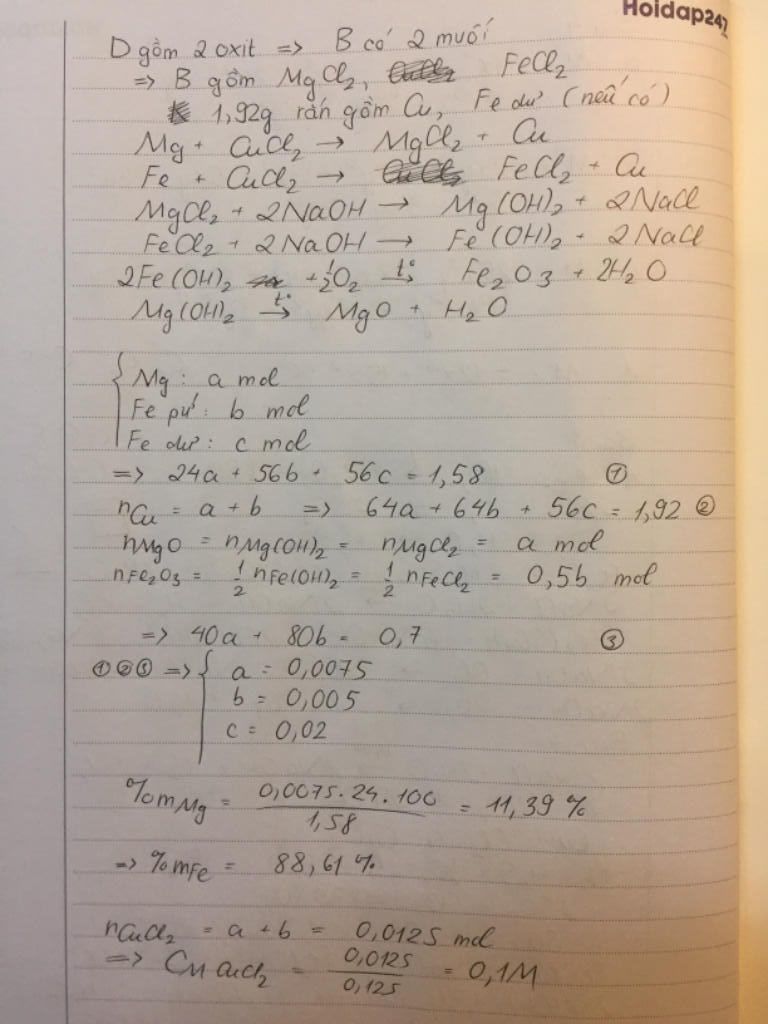 Hoidap247
D gồm 2 oxit => B có 2 muối
=> B gồm MgCl2, FeCl2
1,92g rắn gồm Cu, Fe dư (nếu có)
Mg + CuCl2 → MgCl2 + Cu
Fe + CuCl2 → FeCl2 + Cu
MgCl2 + 2NaOH → Mg(OH)2 + 2NaCl
FeCl2 + 2NaOH → Fe(OH)2 + 2NaCl
2Fe(OH)2 + 1/2 O2 t°→ Fe2O3 + 2H2O
Mg(OH)2 t°→ MgO + H2O
{ Mg: a mol
Fe pứ: b mol
Fe dư: c mol
=> 24a + 56b + 56c = 1,58 ①
nCu = a + b => 64a + 64b + 56c = 1,92 ②
nMgO = nMg(OH)2 = nMgCl2 = a mol
nFe2O3 = 1/2 nFe(OH)2 = 1/2 nFeCl2 = 0,5b mol
=> 40a + 80b = 0,7 ③
①②③ => { a = 0,0075
b = 0,005
c = 0,02
%mMg = 0,0075.24.100/1,58 = 11,39 %
=> %mFe = 88,61 %
nCuCl2 = a + b = 0,0125 mol
=> CM CuCl2 = 0,0125/0,125 = 0,1M